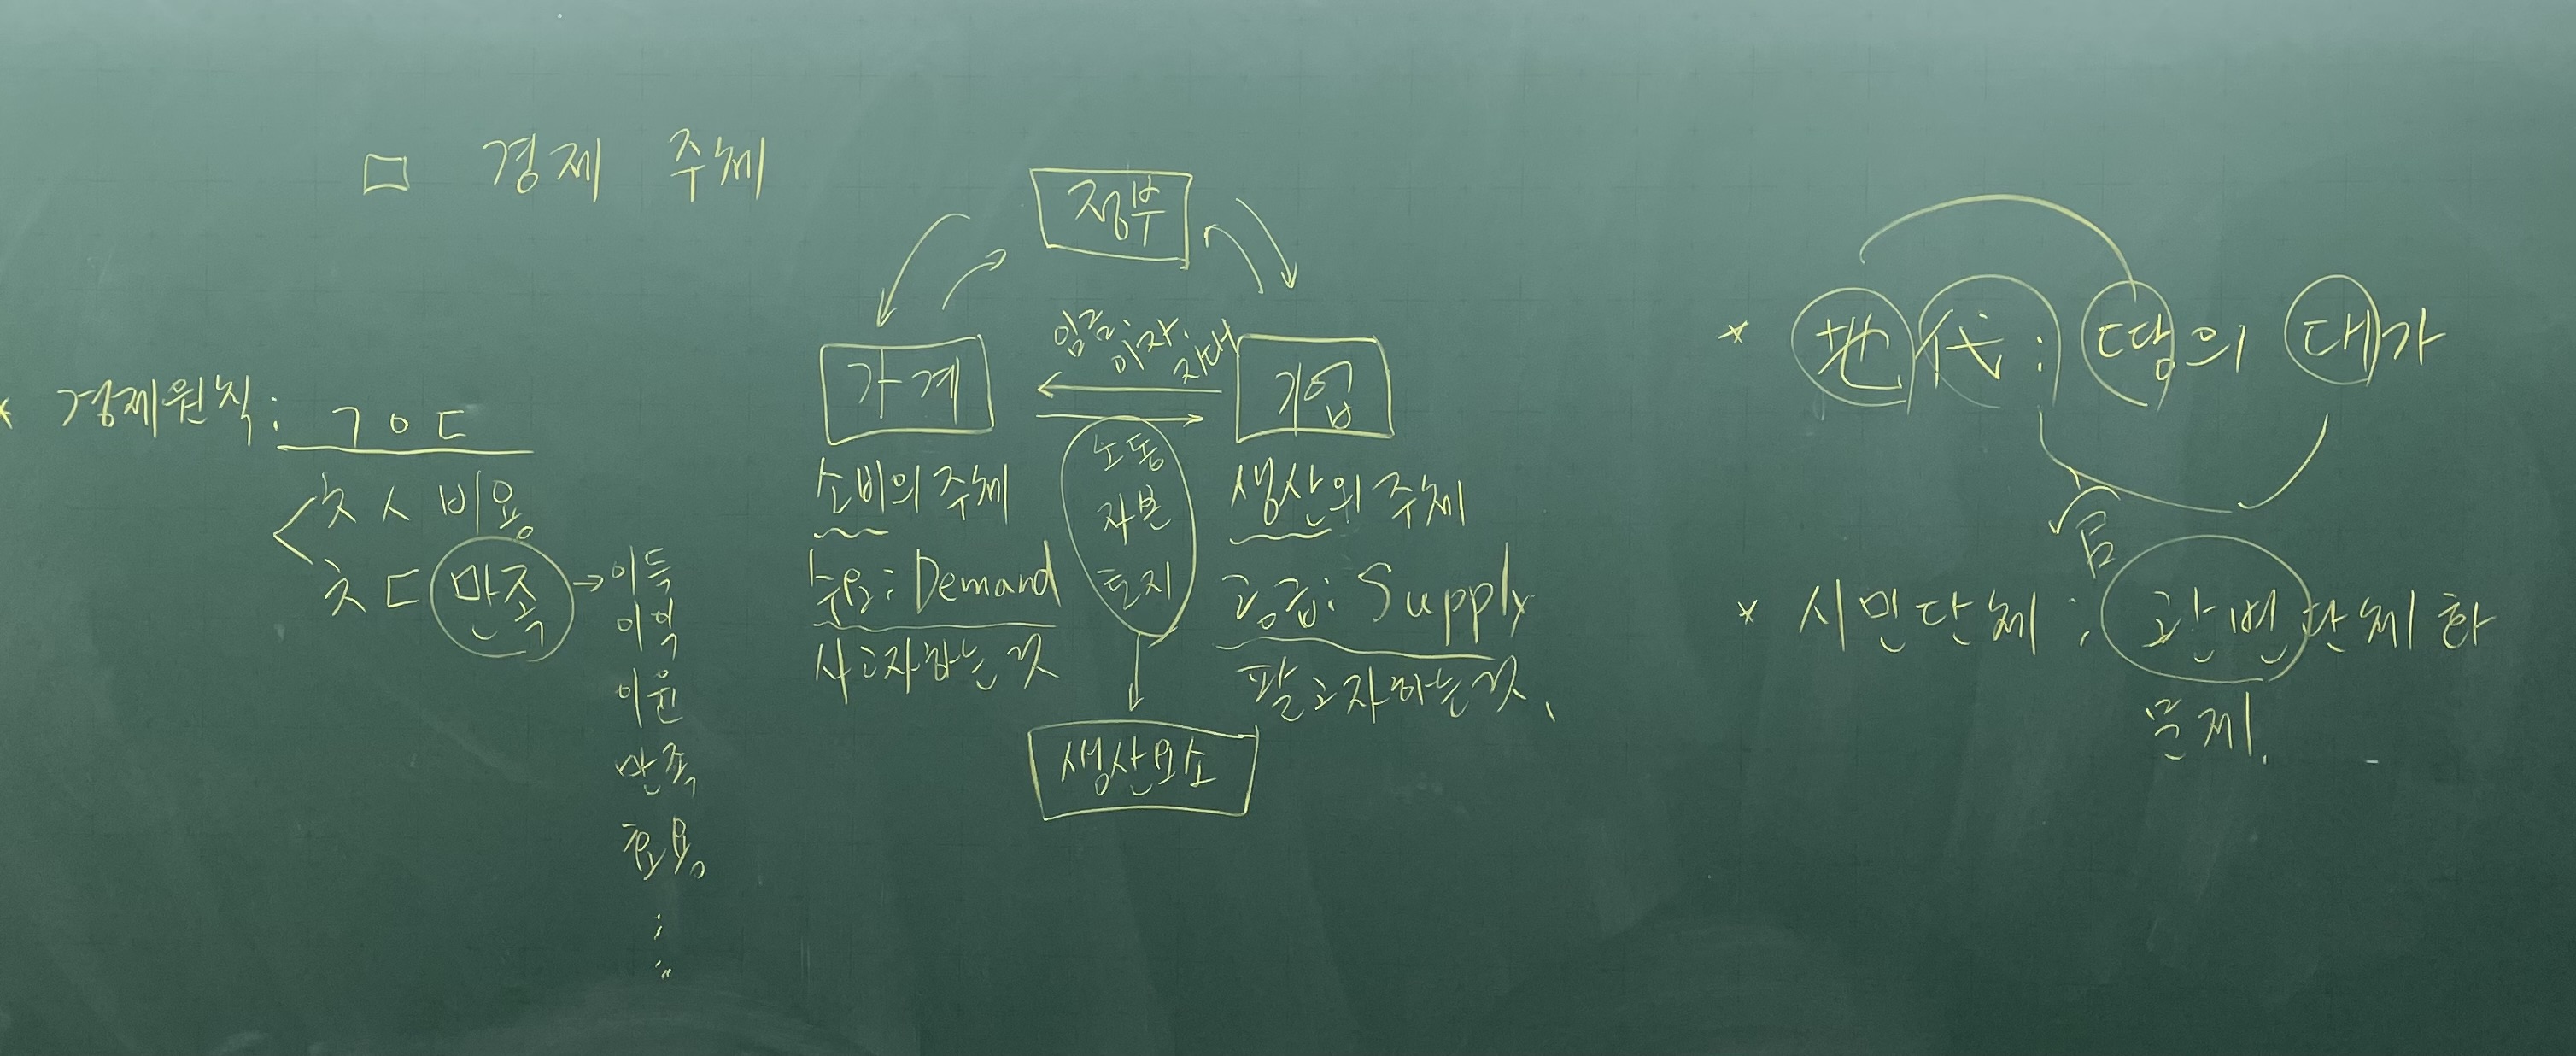 □ 경제 주체
* 경제원칙: ㄱㅇㄷ
ㅊㅅ 비용
ㅊㄷ 만족 → 이득
이익
이윤
만족
효용
정부
가계
임금·이자·지대
기업
소비의 주체
수요: Demand
사고자하는 것
노동
자본
토지
생산요소
생산의 주체
공급: Supply
팔고자하는 것
* 地代: 땅의 대가
* 시민단체: 단체 한
문제.